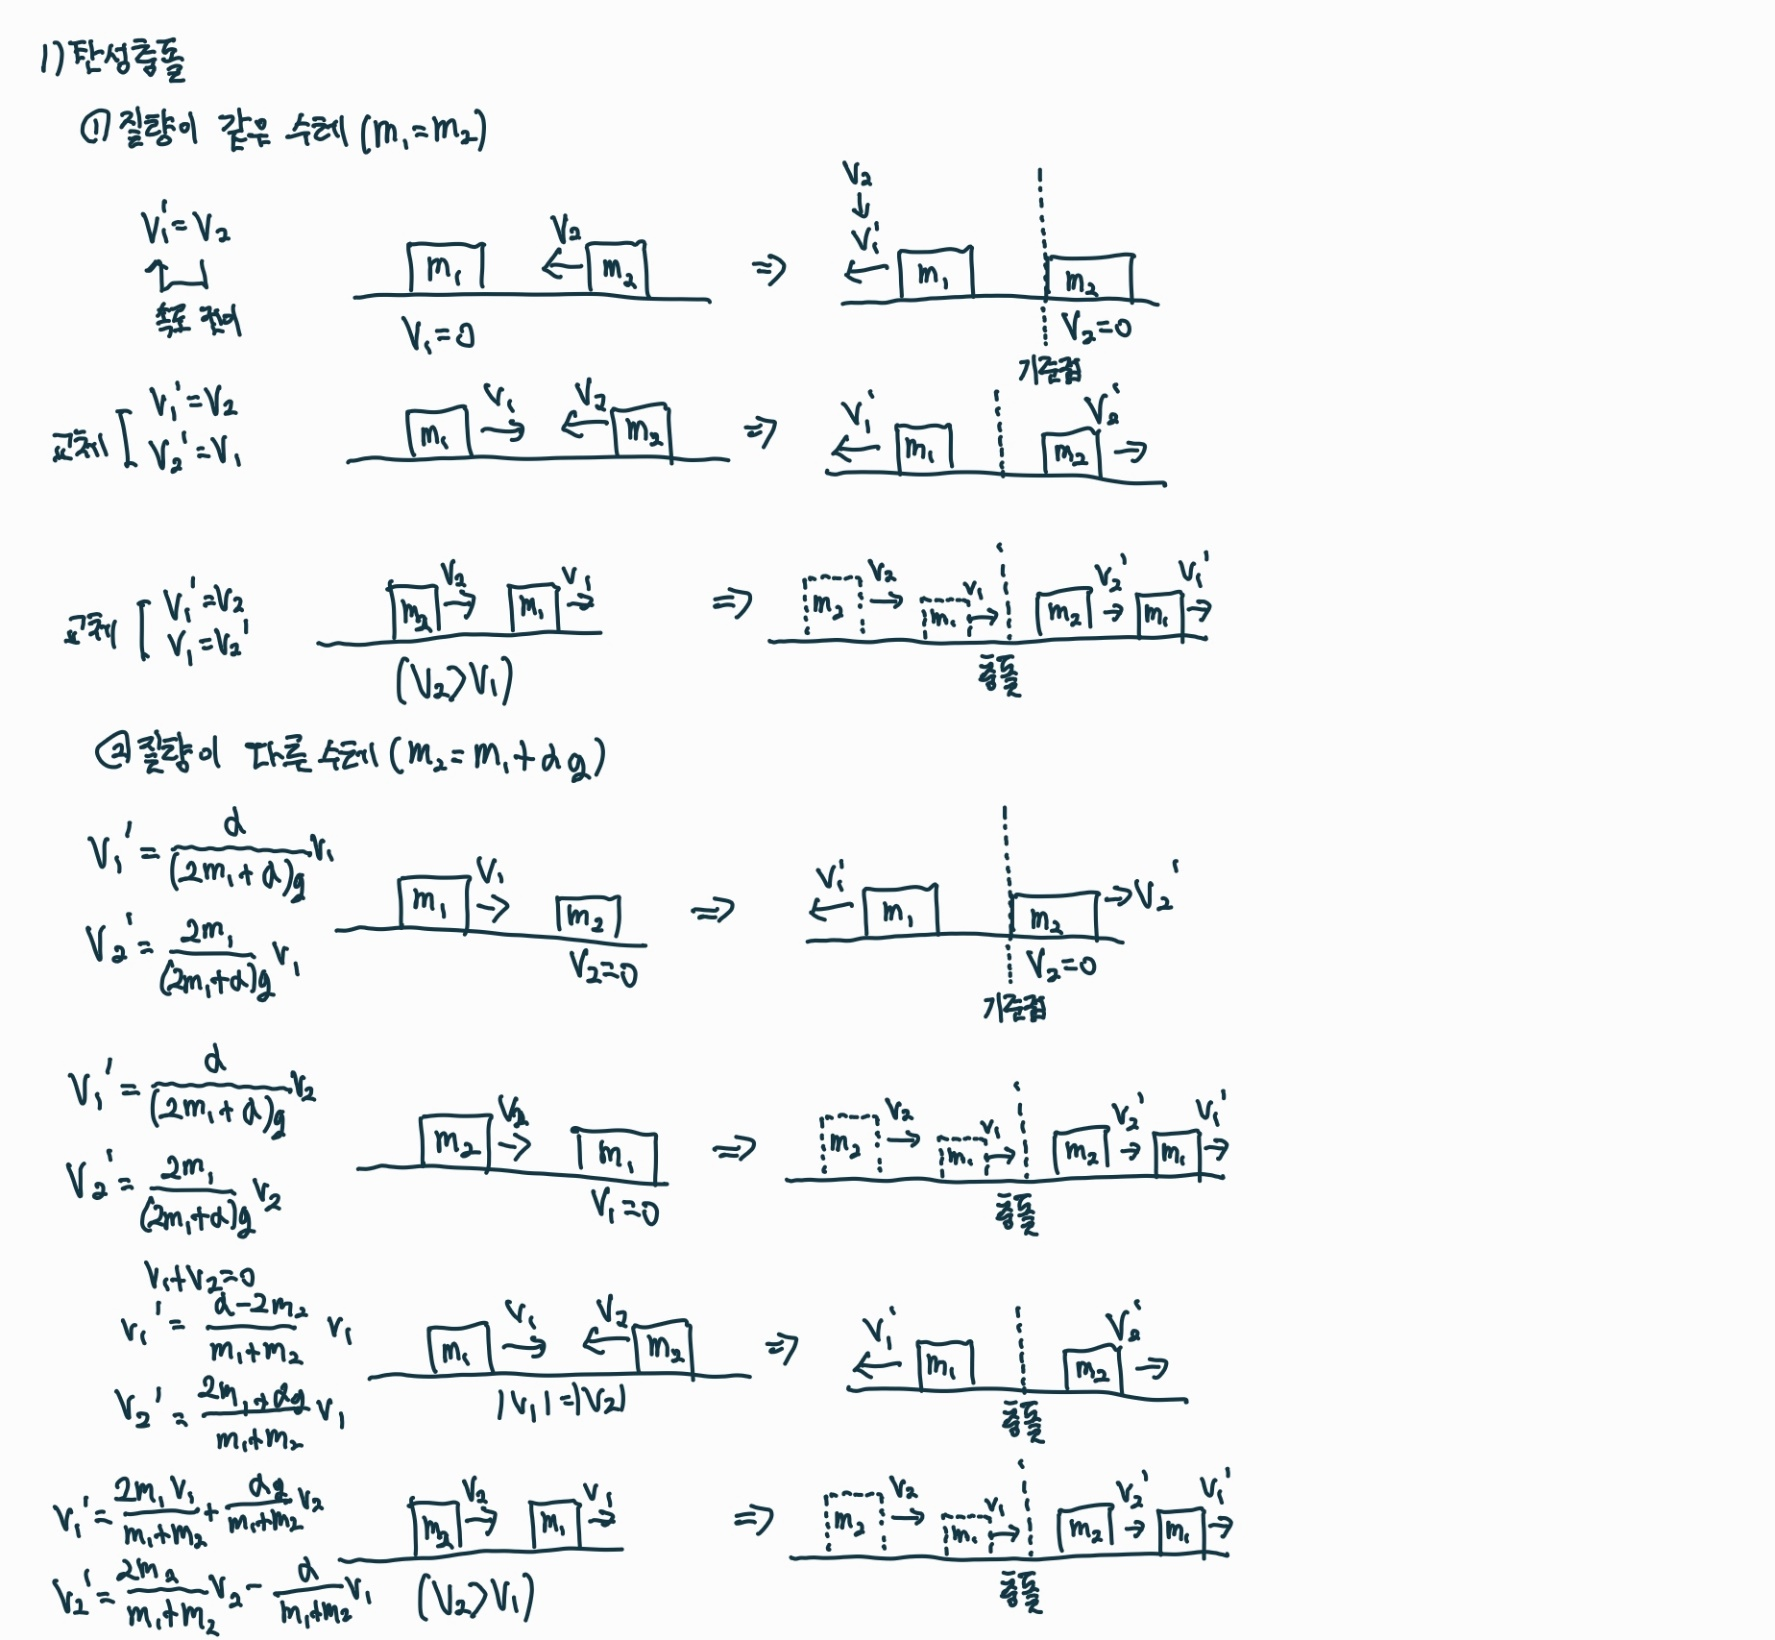 1) 탄성충돌
① 질량이 같은 수레 (m₁=m₂)
V₁'=V₂
속도 전이
m₁ V₂ m₂ ⇒ V₂ V₁' m₁ m₂
V₁=0 V₂=0
기준점
교체 [ V₁'=V₂
V₂'=V₁
m₁ V₁ V₂ m₂ ⇒ V₁' m₁ m₂ V₂'
교체 [ V₁'=V₂
V₁=V₂'
m₂ V₂ m₁ V₁ ⇒ m₂ V₂ m₁ V₁ m₂ V₂' m₁ V₁'
(V₂>V₁) 충돌
② 질량이 다른 수레 (m₂=m₁+αg)
V₁' = α/(2m₁+α)g V₁
V₂' = 2m₁/(2m₁+α)g V₁
m₁ V₁ m₂ ⇒ V₁' m₁ m₂ V₂'
V₂=0 V₂=0
기준점
V₁' = α/(2m₁+α)g V₂
V₂' = 2m₁/(2m₁+α)g V₂
m₂ V₂ m₁ ⇒ m₂ V₂ m₁ V₁ m₂ V₂' m₁ V₁'
V₁=0 충돌
V₁+V₂=0
V₁' = α-2m₂/m₁+m₂ V₁
V₂' = 2m₁+αg/m₁+m₂ V₁
m₁ V₁ V₂ m₂ ⇒ V₁' m₁ m₂ V₂'
|V₁|=|V₂| 충돌
V₁' = 2m₁V₁/m₁+m₂ + αg/m₁+m₂ V₂
V₂' = 2m₂/m₁+m₂ V₂ - α/m₁+m₂ V₁
m₂ V₂ m₁ V₁ ⇒ m₂ V₂ m₁ V₁ m₂ V₂' m₁ V₁'
(V₂>V₁) 충돌